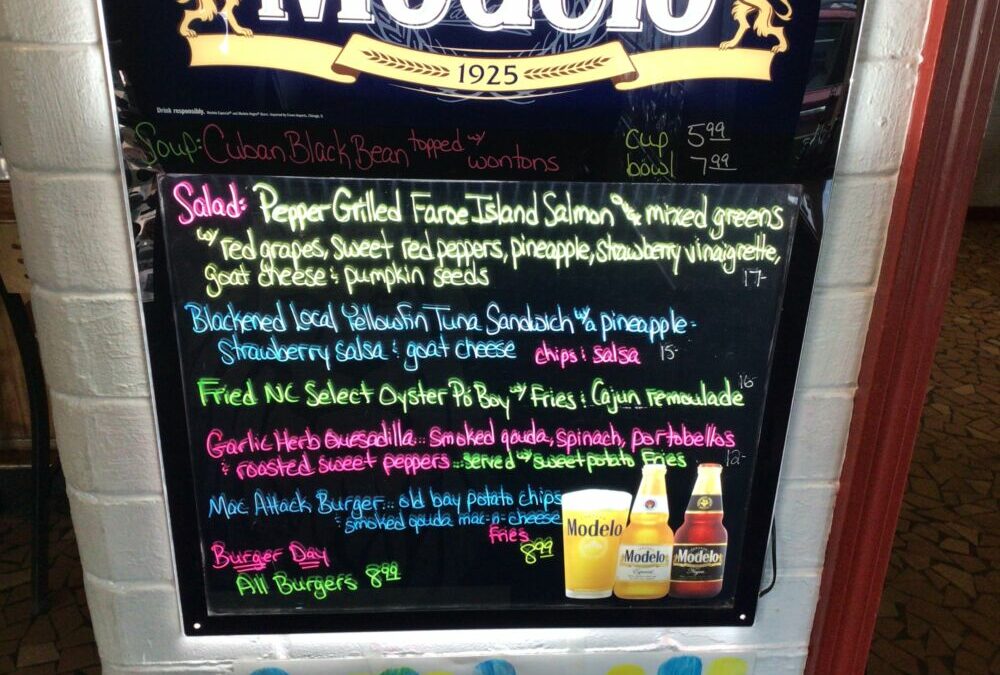 Modelo
1925
Drink responsibly.
Soup: Cuban Black Bean topped w/ wontons cup 5.99
bowl 7.99
Salad: Pepper Grilled Faroe Island Salmon o/ mixed greens
w/ red grapes, sweet red peppers, pineapple, strawberry vinaigrette,
goat cheese & pumpkin seeds 17-
Blackened Local Yellowfin Tuna Sandwich w/ a pineapple-
strawberry salsa & goat cheese chips & salsa 15-
Fried NC Select Oyster Po' Boy w/ Fries & Cajun remoulade 16-
Garlic Herb Quesadilla... smoked gouda, spinach, portobellos
& roasted sweet peppers ... served w/ sweet potato Fries 12-
Mac Attack Burger... old bay potato chips
& smoked gouda mac-n-cheese
Fries
8.99
Burger Day
All Burgers 8.99
Modelo
Modelo
Especial
Modelo
Negra